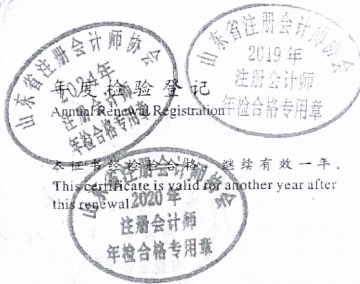 山东省注册会计师协会
2019年
注册会计师
年检合格专用章
山东省注册会计师协会
2024年
注册会计师
年检合格专用章
年度检验登记
Annual Renewal Registration
本证书经检验合格，继续有效一年。
This certificate is valid for another year after
this renewal.
山东省注册会计师协会
2020年
注册会计师
年检合格专用章